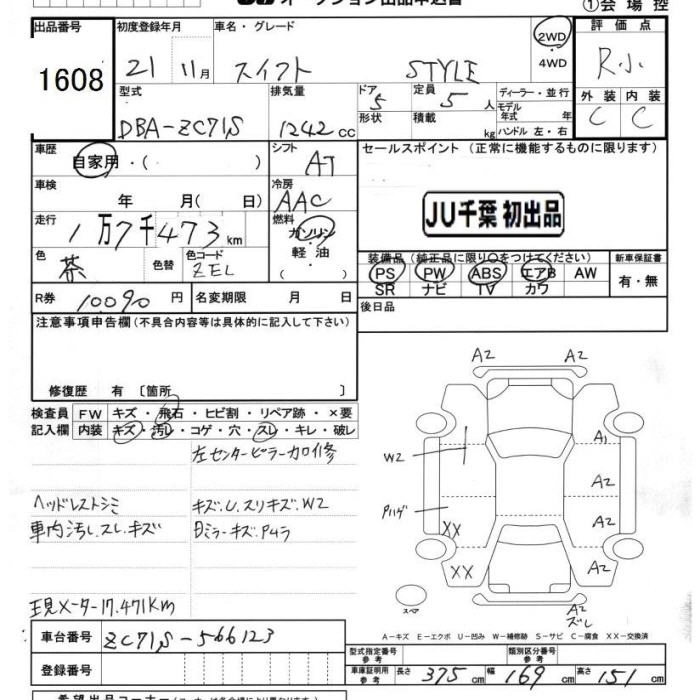 オークション出品申込書
①会場控
出品番号 初度登録年月 車名・グレード 2WD 評価点
1608 21 11月 スイフト STYLE ・4WD R小
型式 排気量 ドア 定員 ディーラー・並行 外装 内装
DBA-ZC71S 1242cc 5 5人 モデル年式 年 C C
形状 積載 kg ハンドル 左・右
車歴 シフト セールスポイント(正常に機能するものに限ります)
自家用・( ) AT
車検 冷房
年 月( 日) AAC
JU千葉 初出品
走行 燃料
1万7千473km ガソリン・軽油・( )
色 色替 色コード 装備品(純正品に限り○をつけてください) 新車保証書
茶 ZEL PS PW ABS エアB AW 有・無
SR ナビ TV カワ
R券 10090円 名変期限 月 日 後日品
注意事項申告欄(不具合内容等は具体的に記入して下さい)
修復歴 有 [箇所 ]
検査員 FW キズ・飛石・ヒビ割・リペア跡・×要
記入欄 内装 キズ・汚レ・コゲ・穴・スレ・キレ・破レ
左センターピラー加修
ヘッドレストシミ キズ.U.スリキズ.W2
車内汚レ.スレ.キズ Bミラーキズ.Pムラ
現メーター17.471Km
A2 A2
A1
W2
A2
Pハゲ
A2
XX
XX A2
スペア
A2
ズレ
A-キズ E-エクボ U-凹み W-補修跡 S-サビ C-腐食 XX-交換済
車台番号 ZC71S-566123
型式指定番号 参考 類別区分番号 参考
登録番号 車庫証明用 参考 長さ 375cm 幅 169cm 高さ 151cm
希望出品コーナー